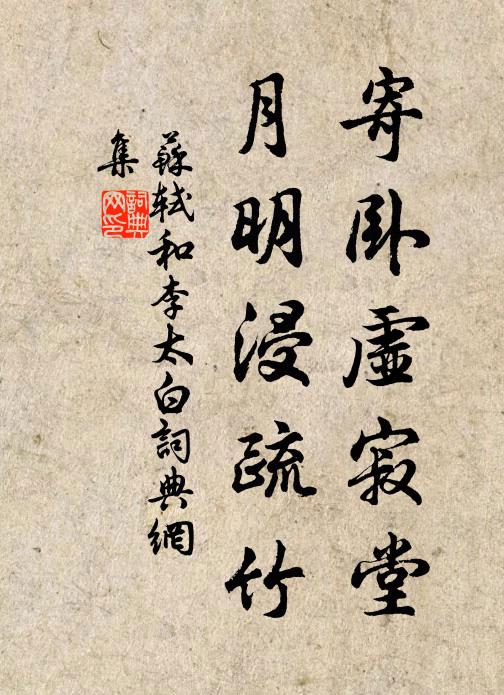 寄臥虛寂堂
月明浸疏竹
蘇軾和李太白詞典網
集
詞典
网印